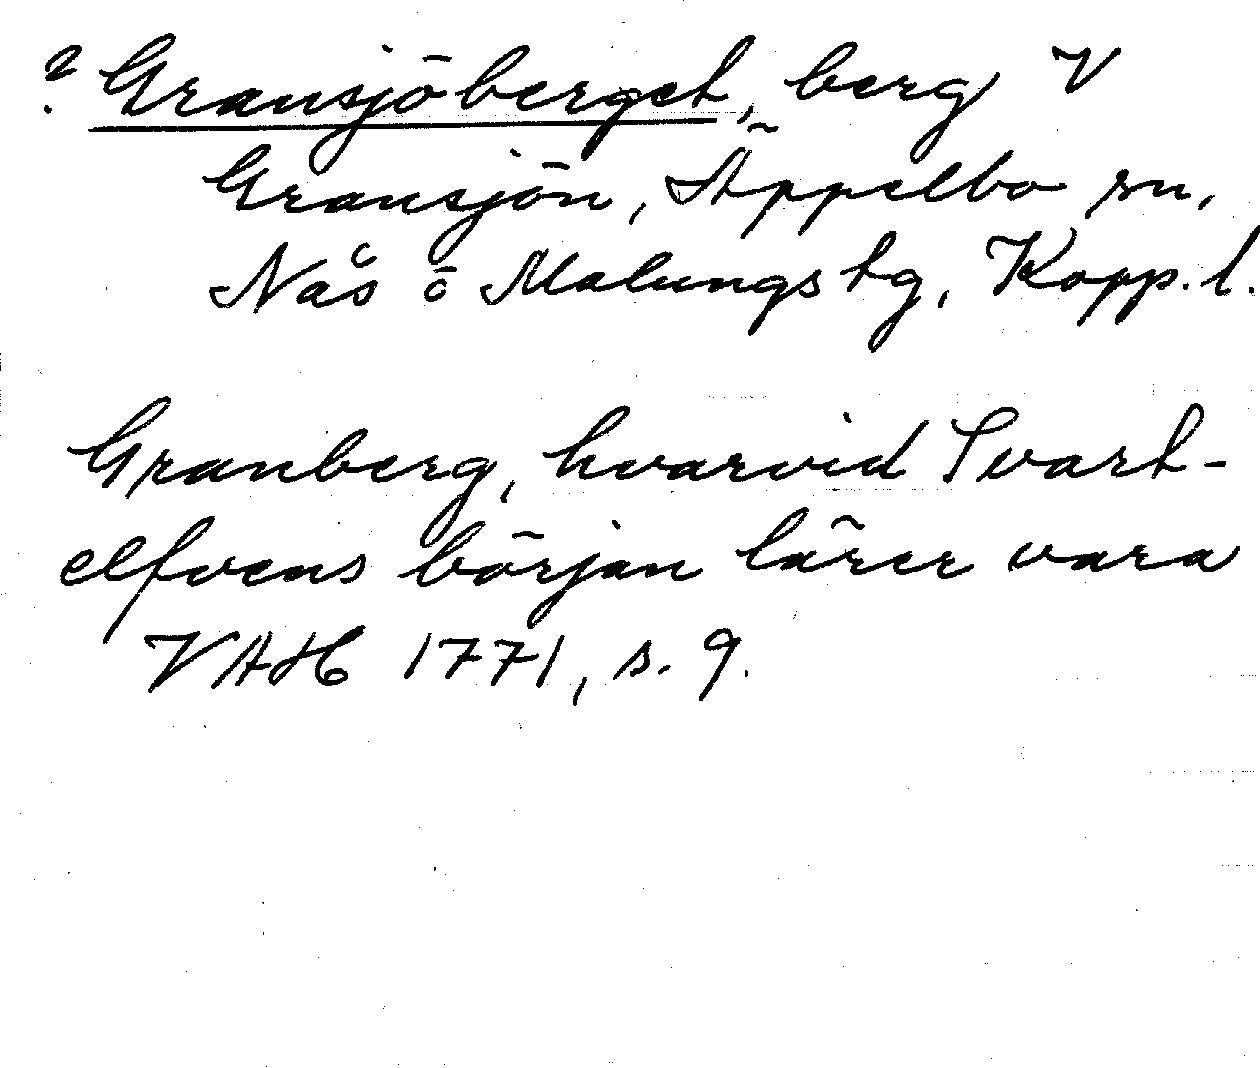 ? Gransjöberget, berg V
Gransjön, Äppelbo sn,
Nås o Malungs tg, Kopp. l.
Granberg, hvarvid Svart-
elfvens början lärer vara
VAH 1771, s. 9.